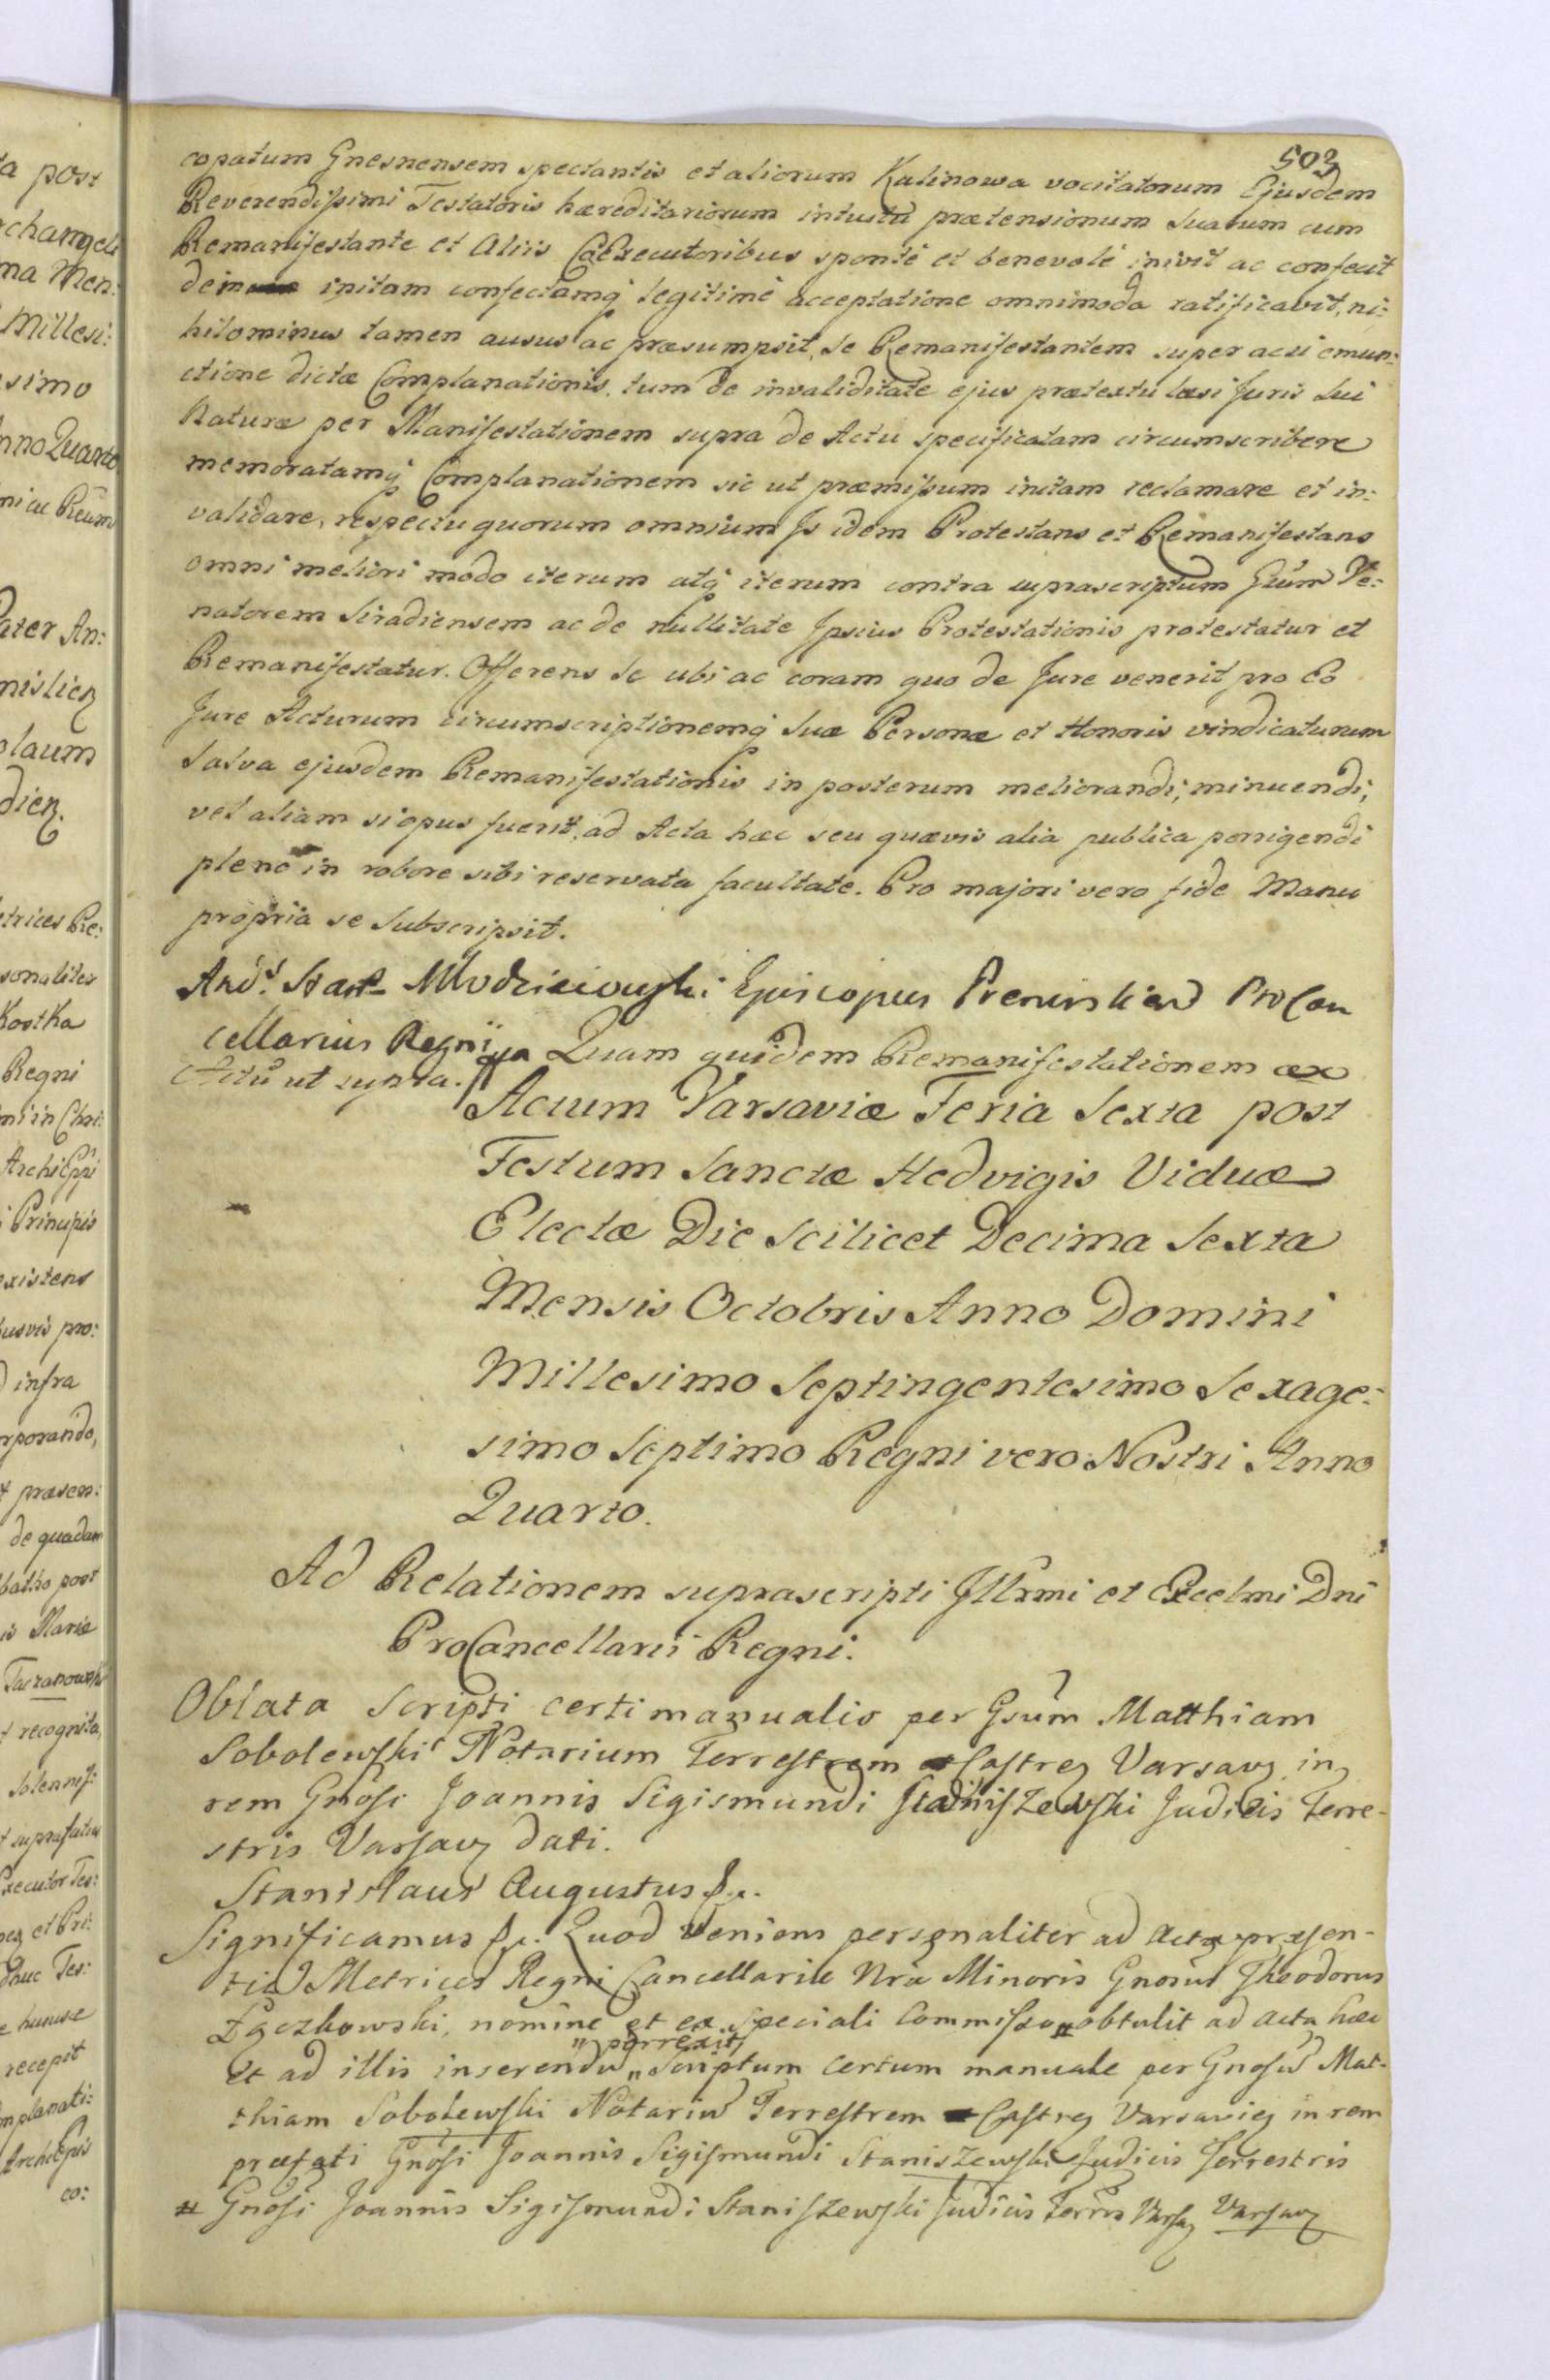 503
copatum Gnesnensem spectantis et aliorum Kalinowa vocitatorum Ejusdem
Reverendissimi Testatoris hæreditariorum intuitu prætensionum suarum cum
Remanifestante et Aliis CoExecutoribus sponte et benevole inivit ac confecit
dein initam confectamq̃ legitime acceptatione omnimoda ratificavit, ni:
hilominus tamen ausus ac præsumpsit, se Remanifestantem super acti emun:
ctione dictæ Complanationis, tum de invaliditate ejus prætextu læsi Juris sui
Naturæ per Manifestationem supra de Actu specificatam circumscribere
memoratamq̃ Complanationem sic ut præmissum initam reclamare et in:
validare, respectu quorum omnium Is idem Protestans et Remanifestans
omni meliori modo iterum atq̃ iterum contra suprascriptum Gnum Ve:
natorem Siradiensem ac de nullitate Ipsius Protestationis protestatur et
Remanifestatur. Offerens se ubi ac coram quo de Jure venerit pro Eo
Jure Acturum circumscriptionemq̃ suæ Personæ et Honoris vindicaturum
Salva ejusdem Remanifestationis in posterum meliorandi, minuendi,
vel aliam si opus fuerit, ad Acta hæc seu quævis alia publica porrigendi
pleno in robore sibi reservata facultate. Pro majori vero fide Manu
propria se Subscripsit.
And: Stan: Młodzieiowski Episcopus Premislien ProCan
cellarius Regni Quam quidem Remanifestationem ex
Actu ut supra.
Actum Varsaviæ Feria Sexta post
Festum Sanctæ Hedvigis Viduæ
Electæ Die scilicet Decima Sexta
Mensis Octobris Anno Domini
Millesimo Septingentesimo Sexage:
simo Septimo Regni vero Nostri Anno
Quarto.
Ad Relationem suprascripti Illrmi et Excelmi Dni
ProCancellarii Regni.
Oblata Scripti certi manualis per Gsum Matthiam
Sobolewski Notarium Terrestrem Castreq Varsav in
rem Gnosi Joannis Sigismundi Staniszewski Judicis Terre-
stris Varsav dati.
Stanislaus Augustus &c.
Significamus &c. Quod Veniens personaliter ad Acta præsen-
tia Metrices Regni Cancellariæ Nræ Minoris Gnosus Theodorus
Łączkowski, nomine et ex speciali Commisso # obtulit ad Acta hæc
" porrexitq
et ad illis inserendū " Scriptum certum manuale per Gnosū Mat-
thiam Sobolewski Notariū Terrestrem Castreq Varsavieq in rem
præfati Gnosi Joannis Sigismundi Staniszewski Judicis Terrestris
# Gnosi Joannis Sigismundi Staniszewski Judicis Terris Varsa Varsav